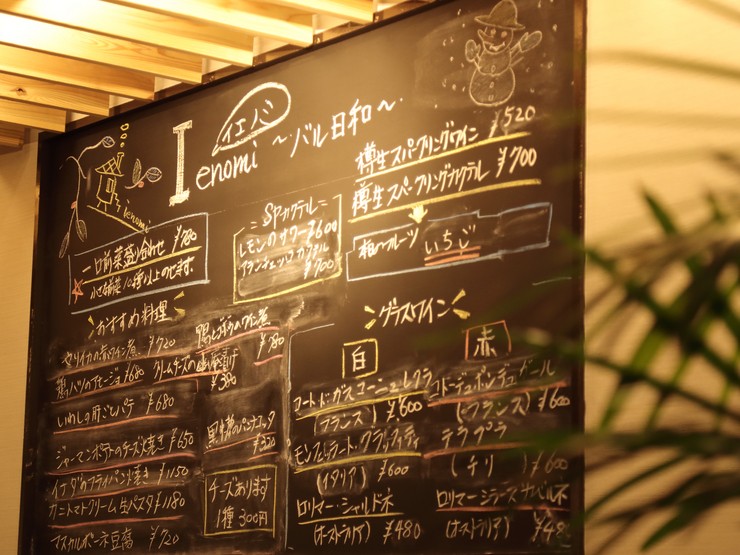 イエノバル
Ienomi ～バル日和～
ienomi
樽生スパークリングワイン ¥520
樽生スパークリングカクテル ¥700
フルーツ いちご
SPカクテル
レモンのサワー ¥600
¥700
一口前菜盛り合わせ ¥780
以上のせます。
おすすめ料理
ヤリイカの赤ワイン煮 ¥720
アヒージョ ¥680
いわしの肝パテ ¥680
ジャーマンポテトのチーズ焼き ¥650
フライパン焼き ¥1150
カニトマトクリーム生パスタ ¥1180
マスカルポーネ豆腐 ¥720
鴨とごぼうのワイン煮 ¥780
クリームチーズの ¥380
黒糖のパンナコッタ ¥320
チーズあります
1種 300円
グラスワイン
白
コート・ド・ガスコーニュ
(フランス) ¥600
モンフェラート・グラッフィティ
(イタリア) ¥600
ロリマー・シャルドネ
(オーストラリア) ¥480
赤
(フランス) ¥600
テラプラ
(チリ) ¥600
ロリマー・シラーズカベルネ
(オーストラリア) ¥48